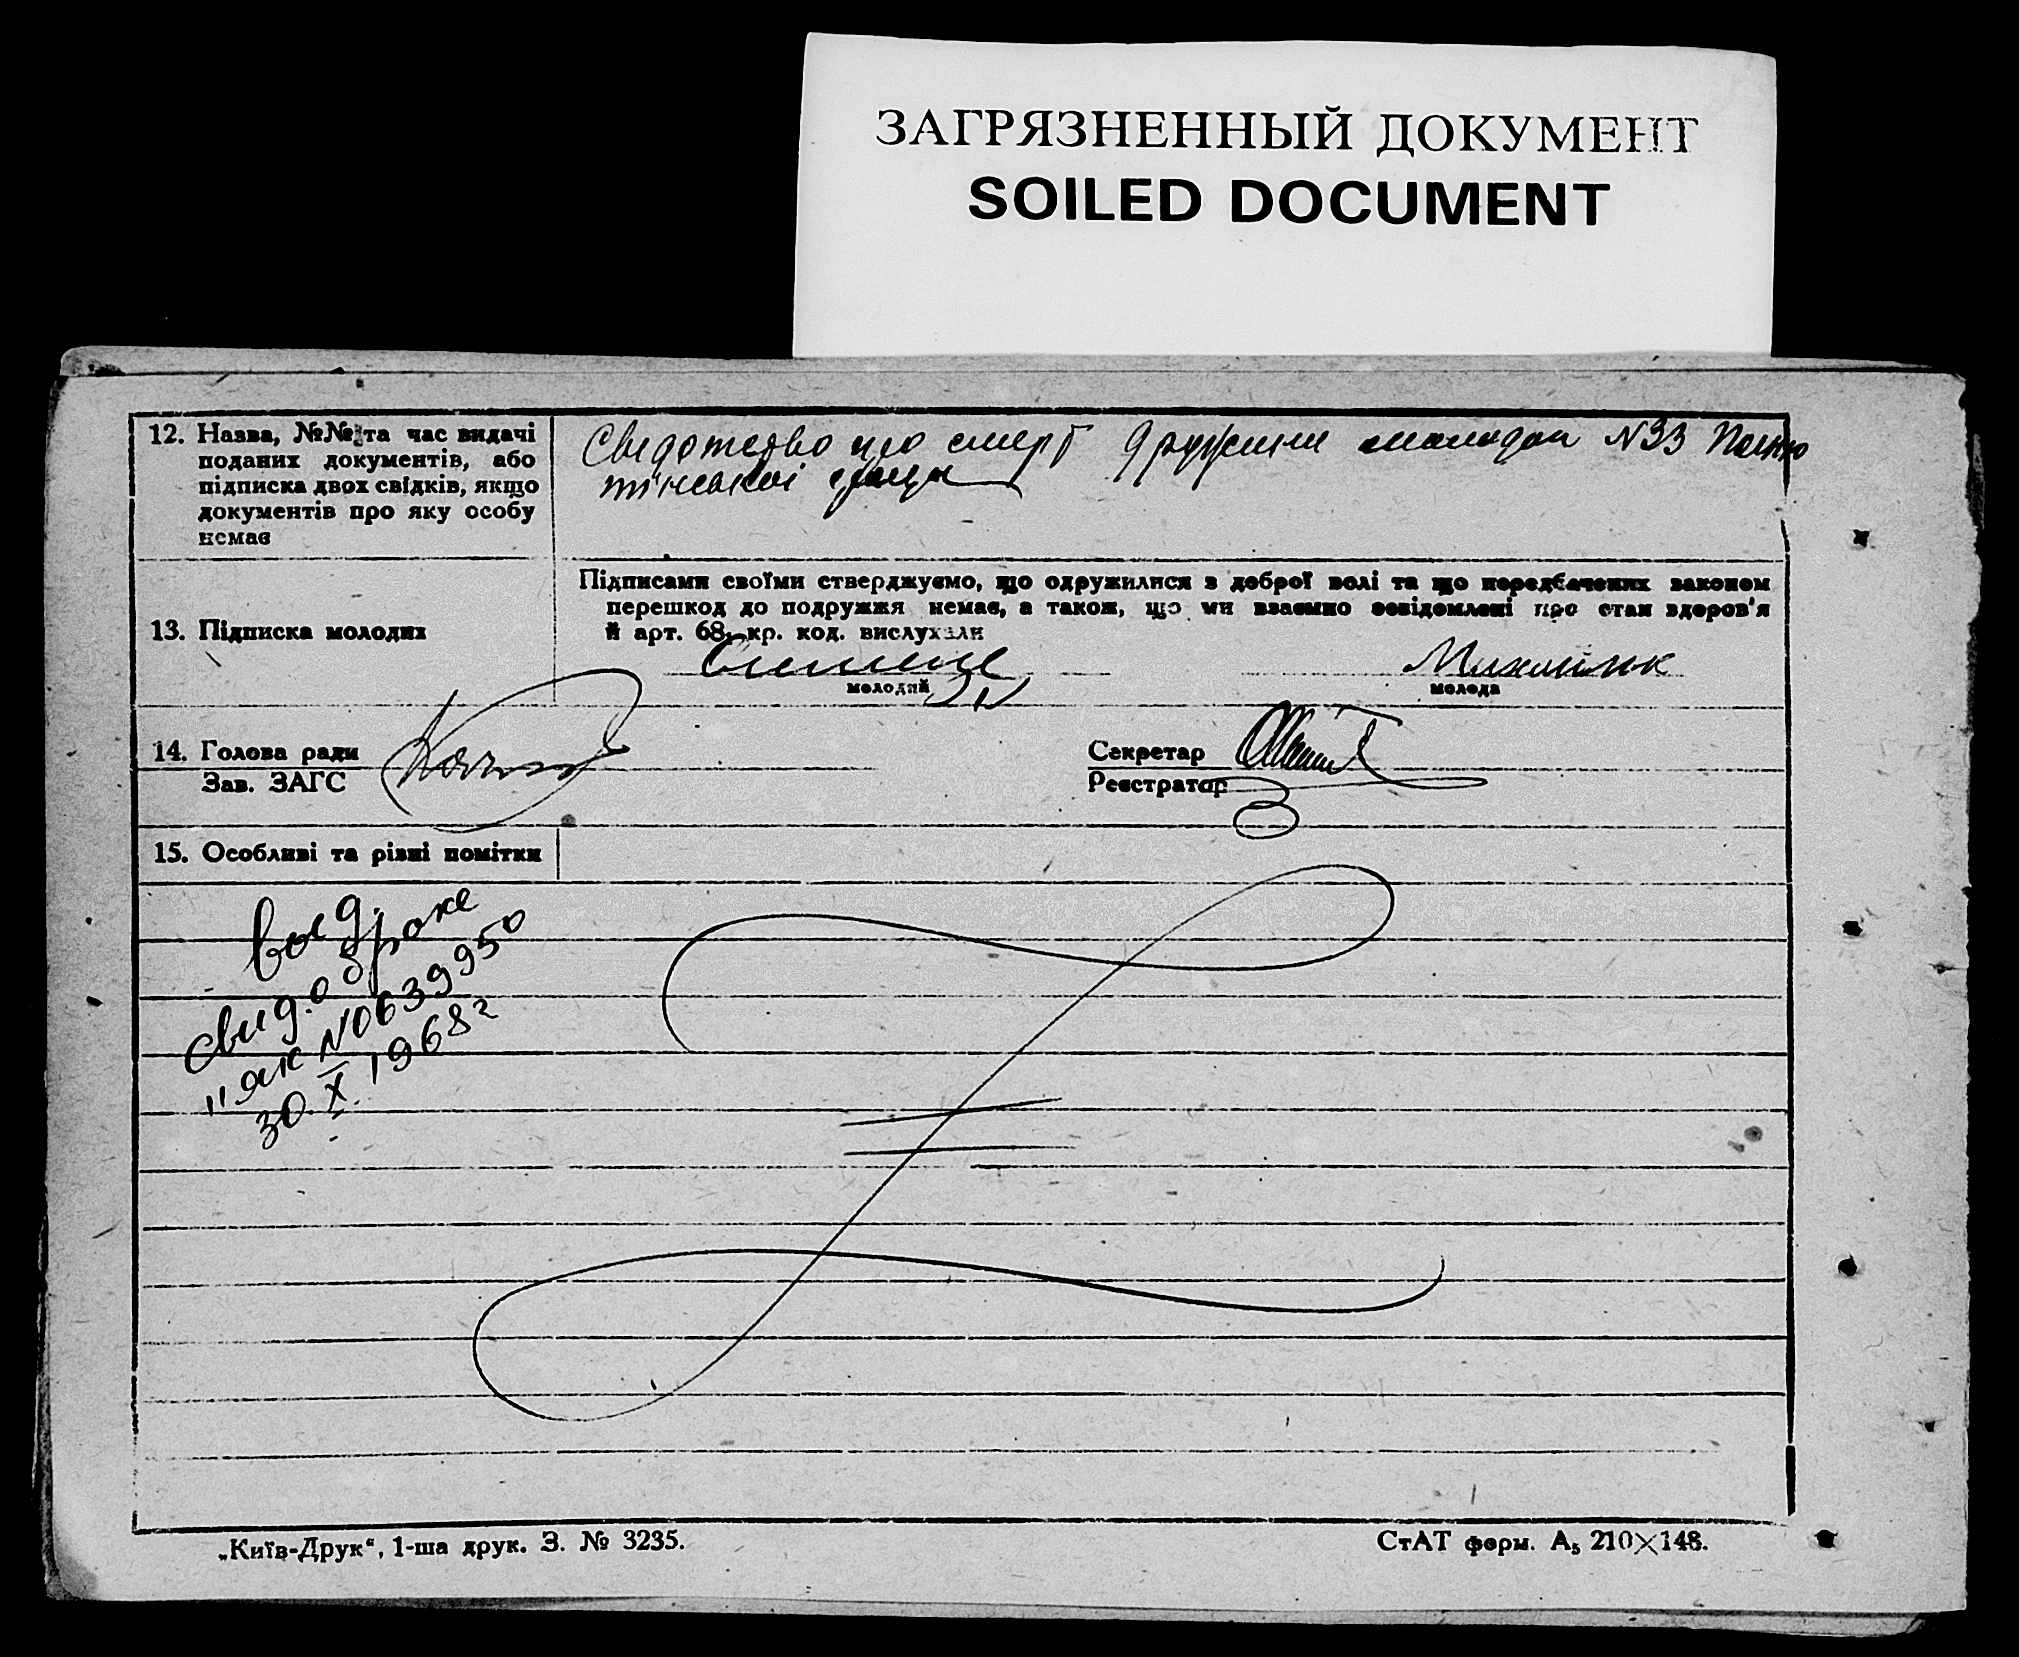 ЗАГРЯЗНЕННЫЙ ДОКУМЕНТ
SOILED DOCUMENT
12. Назва, №№ та час видачі
поданих документів, або
підписка двох свідків, якщо
документів про яку особу
немає
Свидотство про смерт дружини N33
13. Підписка молодих
Підписами своїми стверджуємо, що одружилися з доброї волі та що передбачених законом
перешкод до подружжя немає, а також, що ми взаємно освідомлені про стан здоров'я
й арт. 68, кр. код. вислухали
молодий
молода
14. Голова ради
Зав. ЗАГС
Секретар
Реєстратор
15. Особливі та різні помітки
свид. о браке
"ЯК N0639950
30.X.1968г
„Київ-Друк“, 1-ша друк. З. № 3235.
СтАТ форм. А₅ 210×148.